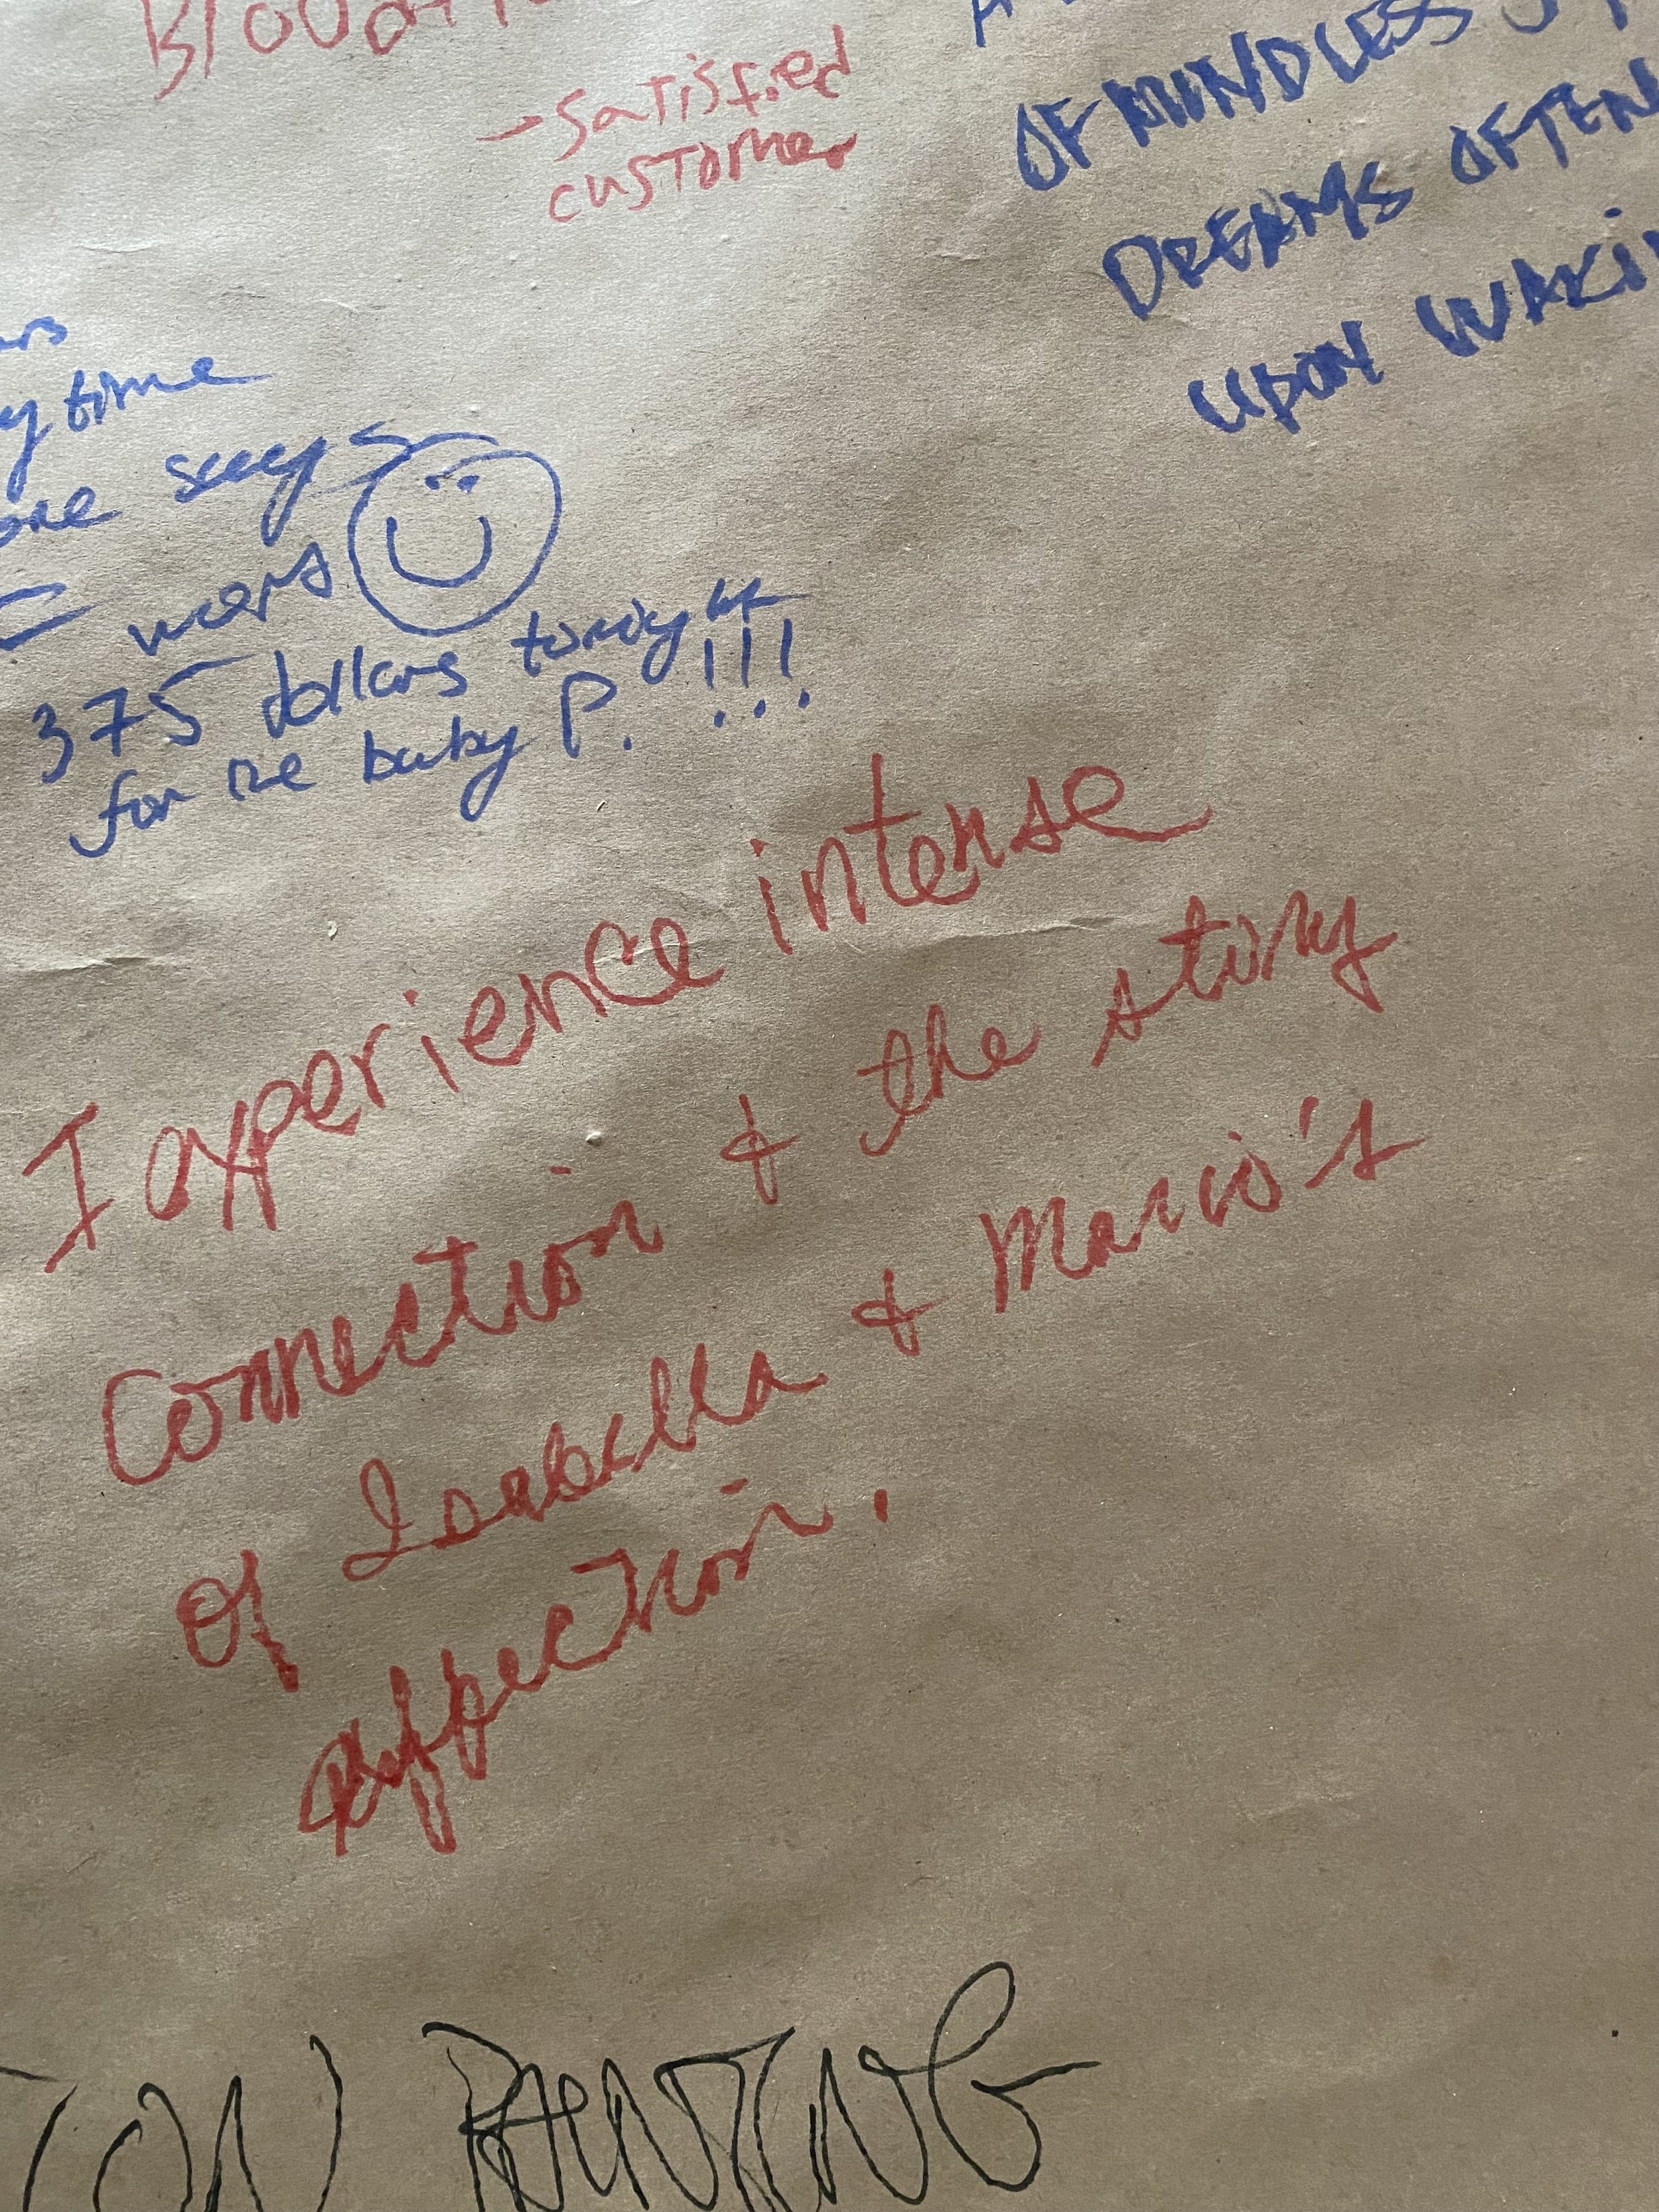 - satisfied
customer
OF MINDLESS
DREAMS OFTEN
UPON
time
says
word
375 dollars tonight
for the baby P. !!!
I experience intense
Connection & the story
of Isabella & Mario's
affection.
PAINTING